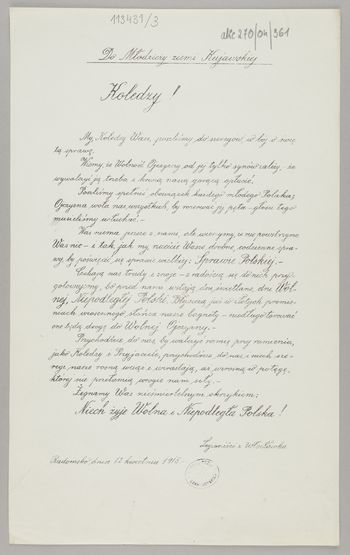 113431/3
akc 270/04/361
Do Młodzieży ziemi Kujawskiej
Koledzy!
My, Koledzy Wasi, poszliśmy do szeregów w bój o świę-
tą sprawę.
Wiemy, że Wolność Ojczyzny od jej tylko synów zależy, że
wywalczyć ją trzeba i krwią naszą gorącą opłacić.
Poszliśmy spełnić obowiązek każdego młodego Polaka;
Ojczyzna woła nas wszystkich, by rozerwać jej pęta – głosu tego
musieliśmy usłuchać. –
Was niema jeszcze z nami, ale wierzymy, że nie powstrzyma
Was nic – i tak, jak my, rzucicie Wasze drobne, codzienne spra-
wy, by poświęcić się sprawie wielkiej: Sprawie Polskiej. –
Czekają nas trudy i znoje – z radością się do nich przy-
gotowujemy, bo przed nami wstają dni świetlane, dni Wol-
nej, Niepodległej Polski. Błyszczą już w złotych promie-
niach wiosennego słońca nasze bagnety – niedługo torować
one będą drogę do Wolnej Ojczyzny. –
Przychodźcie do nas, by walczyć ramię przy ramieniu,
jako Koledzy i Przyjaciele, przychodźcie do nas, niech sze-
regi nasze rosną wciąż i wzrastają, aż urosną w potęgę,
której nie przełamią wrogie nam siły. –
Żegnamy Was nieśmiertelnym okrzykiem:
Niech żyje Wolna i Niepodległa Polska!
Legioniści z Włocławka
Radomsko, dnia 12 kwietnia 1915. –